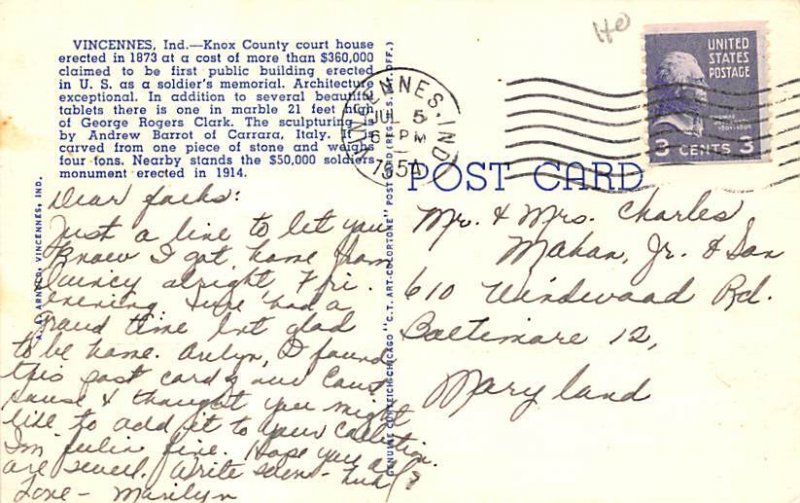 VINCENNES, Ind.—Knox County court house
erected in 1873 at a cost of more than $360,000
claimed to be first public building erected
in U. S. as a soldier's memorial. Architecture
exceptional. In addition to several beautiful
tablets there is one in marble 21 feet high
of George Rogers Clark. The sculpturing is
by Andrew Barrot of Carrara, Italy. It is
carved from one piece of stone and weighs
four tons. Nearby stands the $50,000 soldiers
monument erected in 1914.
A. A. ARNOLD, VINCENNES, IND.
Dear folks:
Just a line to let you
know I got home from
Quincy alright, Fri.
evening. Sure had a
grand time but glad
to be home. I found
this post card of our
house & thought you might
like to add it to your collection.
I'm feelin fine. Hope you all
are swell. Write soon - huh?
Love - Marilyn
GENUINE CURTEICH-CHICAGO "C.T. ART-COLORTONE" POST CARD (REG. U.S. PAT. OFF.)
VINCENNES, IND.
JUL 5
5 PM
1954
UNITED
STATES
POSTAGE
3 CENTS 3
POST CARD
Mr. & Mrs. Charles
Mahan, Jr. & Son
610 Windwood Rd.
Baltimore 12,
Maryland